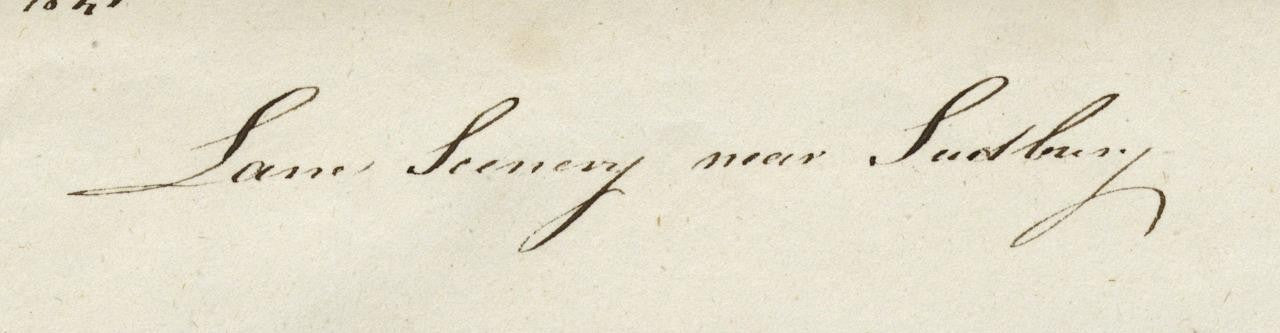 Lane Scenery near Sudbury